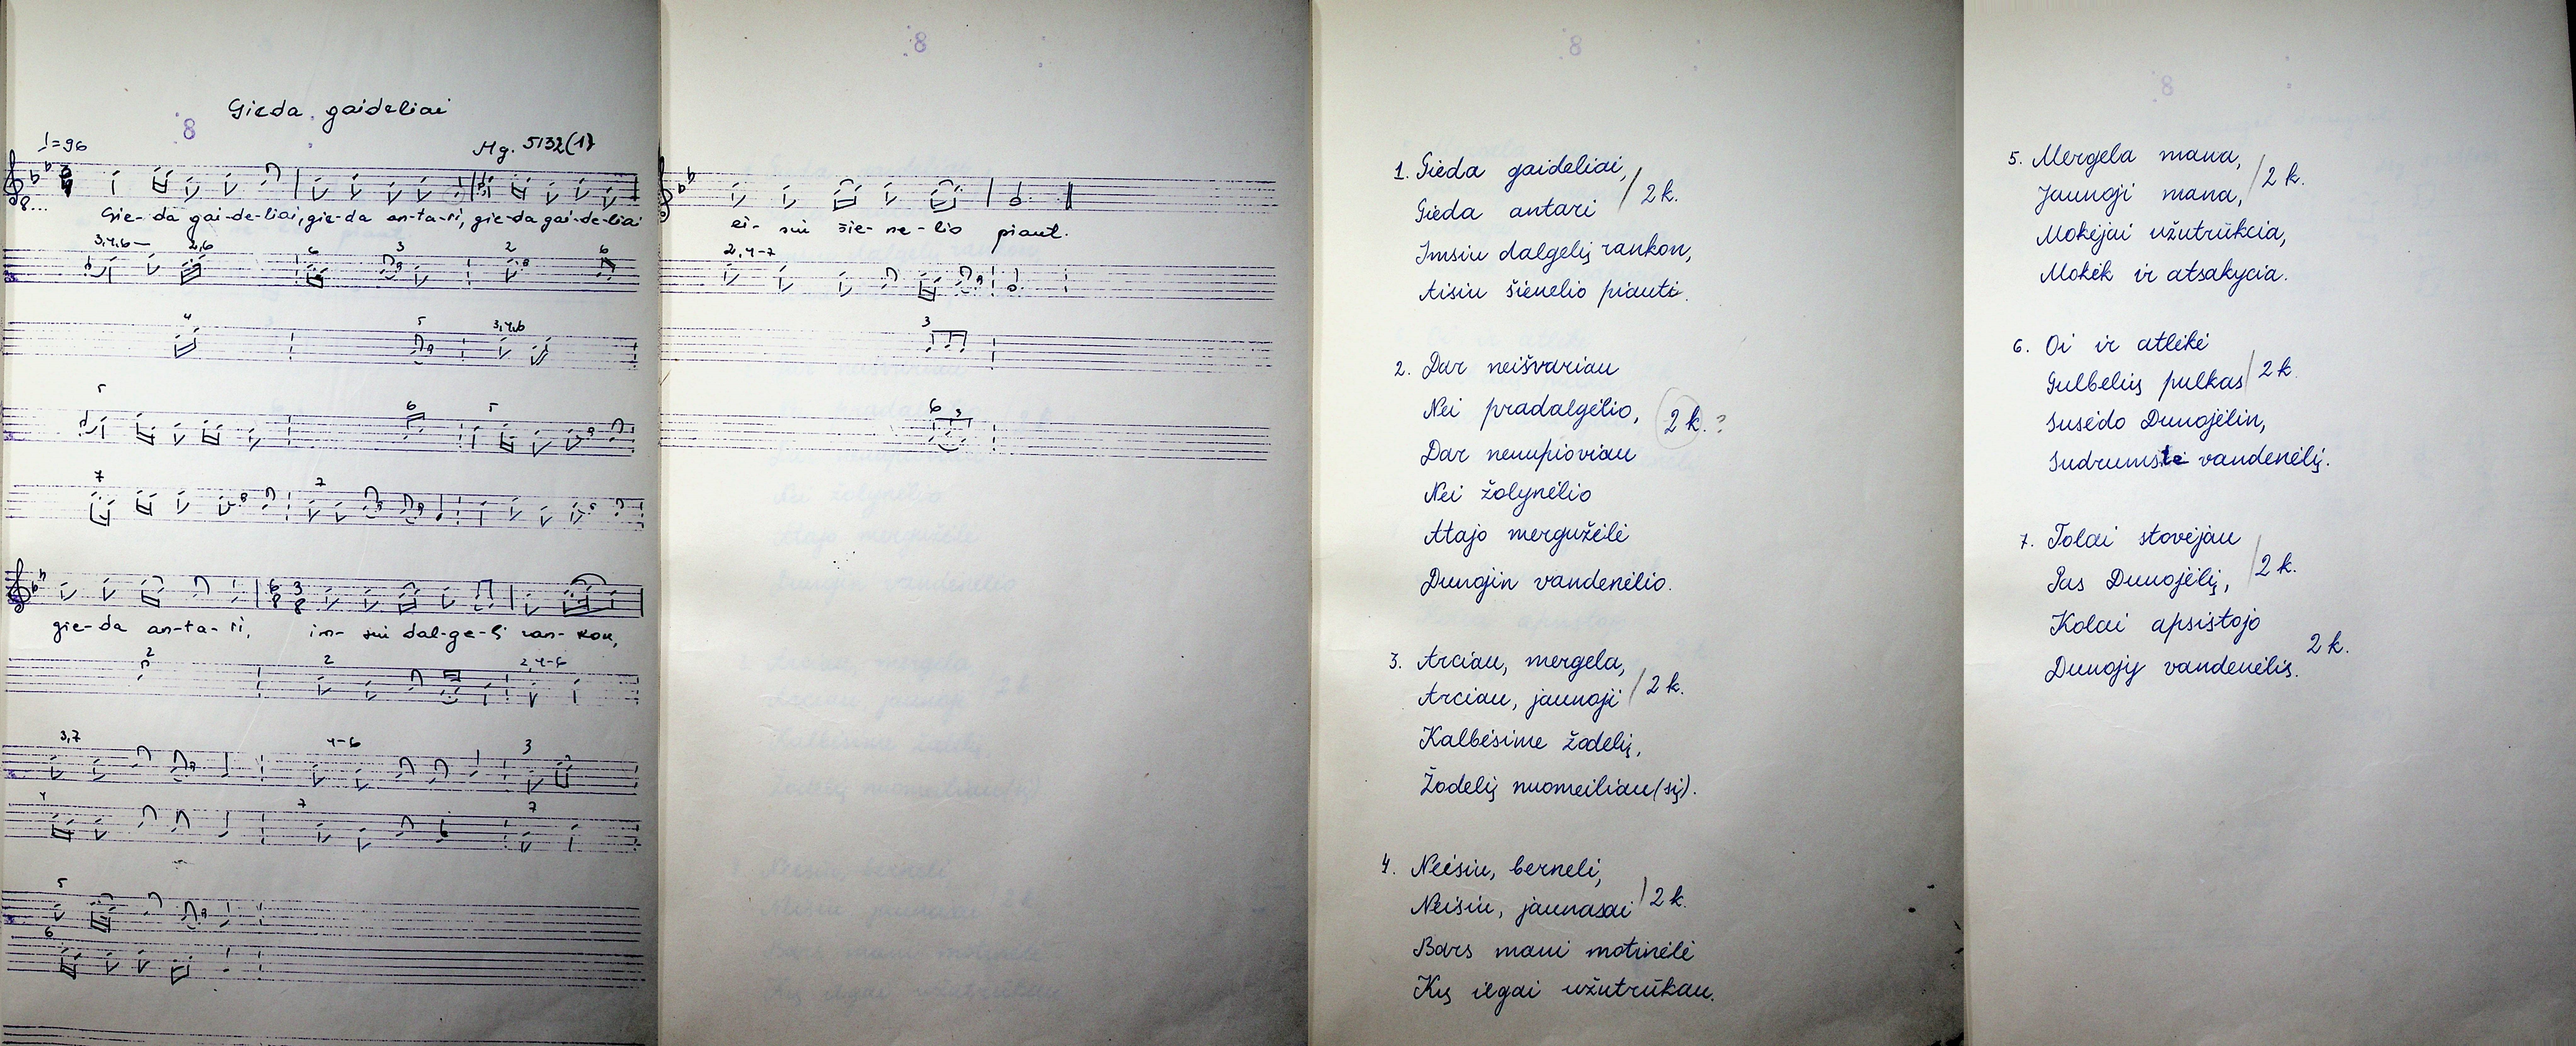 Gieda gaideliai
8
♩=96
Mg. 5132(1)
8...
Gie-da gai-de-liai, gie-da an-ta-ri, gie-da gai-de-liai
3,4,6— 2,6 6 3 2 6
4 5 3,4,6
5 6 5
7 7
gie-da an-ta-ri, im-siu dal-ge-lį ran-kon,
2 2 2,4-6
3,7 4-6 3
4 7 7
5
6
8
ei-siu šie-ne-lio piaut.
2,4-7
3
6 3
8
1. Gieda gaideliai,
Gieda antari / 2 k.
Imsiu dalgelį rankon,
Aisiu šienelio piauti.
2. Dar neišvariau
Nei pradalgėlio, 2 k. ?
Dar nenupioviau
Nei žolynėlio
Atajo mergužėlė
Dunojin vandenėlio.
3. Arciau, mergela,
Arciau, jaunoji / 2 k.
Kalbėsime žodelį,
Žodelį nuomeiliau(sį).
4. Neisiu, berneli,
Neisiu, jaunasai / 2 k.
Bars mani motinėlė
Kų ilgai užutrūkau.
8
5. Mergela mana,
Jaunoji mana, / 2 k.
Mokėjai užutrūkcia,
Mokėk ir atsakycia.
6. Oi ir atlėkė
Gulbelių pulkas / 2 k.
Susėdo Dunojėlin,
Sudrumstė vandenėlį.
7. Tolai stovėjau
Pas Dunojėlį, / 2 k.
Kolai apsistojo
Dunojų vandenėlis. 2 k.